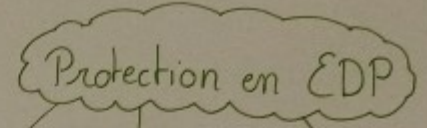 Protection en EDP